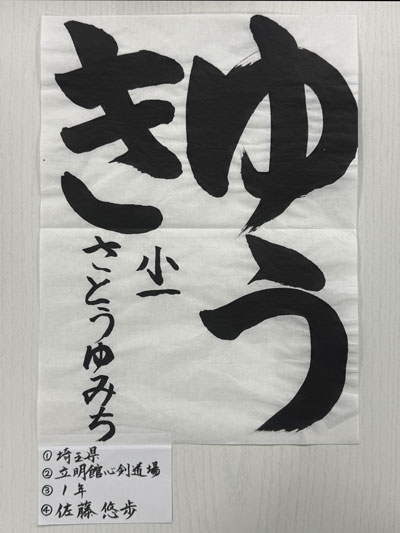 ゆう
き
小一
さとうゆみち
①埼玉県
②立明館心剣道場
③1年
④佐藤悠歩